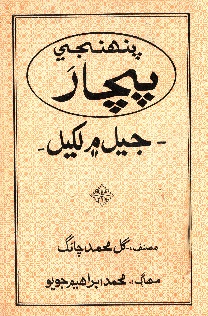 پنهنجي
پچار
- جيل ۾ لکيل -
مصنف:- گل محمد چانگ
مھاڳ:- محمد ابراهيم جويو